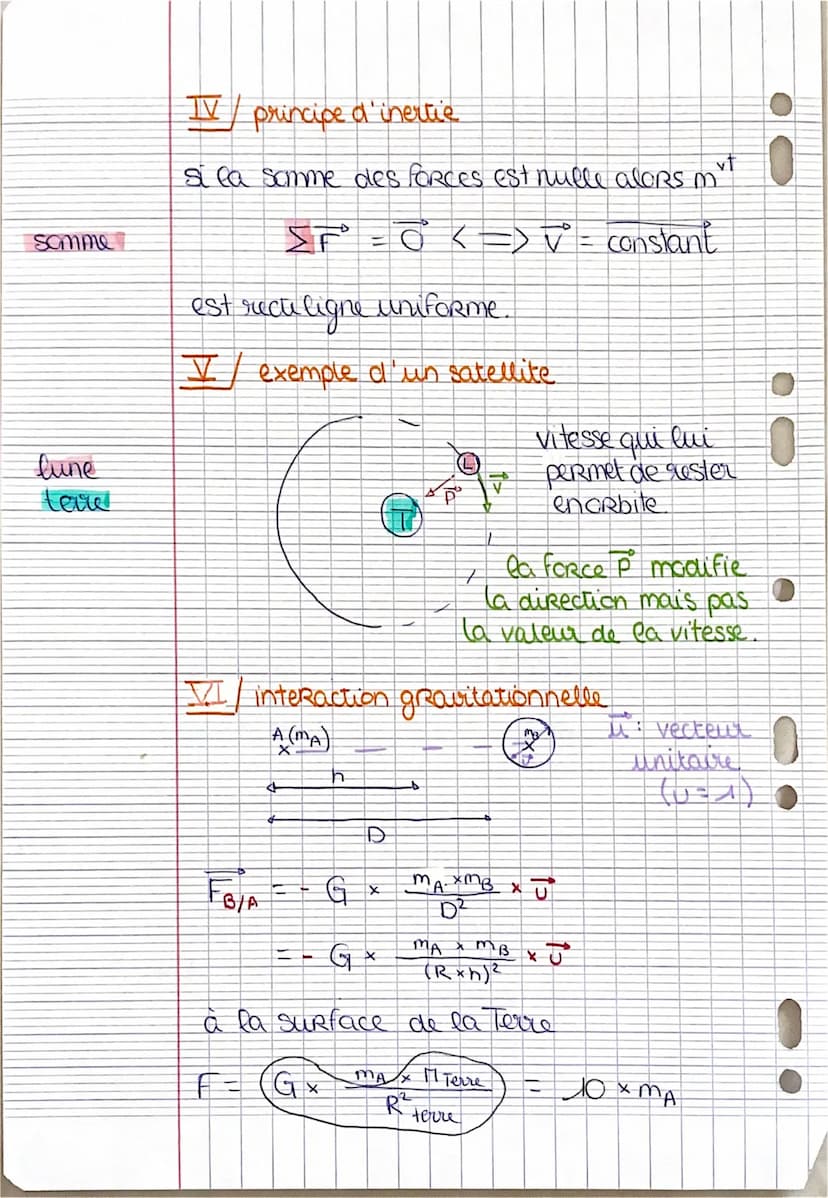 IV/ principe d'inertie
si la somme des forces est nulle alors m^vt
somme
Σ F⃗ = 0⃗ <=> V⃗ = constant
est rectiligne uniforme.
V/ exemple d'un satellite
lune
terre
L
P⃗
V⃗
T
vitesse qui lui
permet de rester
en orbite
la force P⃗ modifie
la direction mais pas
la valeur de la vitesse.
VI/ interaction gravitationnelle
A (mA)
x
mB
x
h
D
u⃗ : vecteur
unitaire
(u=1)
F⃗ B/A = - G x mA x mB / D² x u⃗
= - G x mA x mB / (R x h)² x u⃗
à la surface de la Terre
F = (G x mA x M Terre / R² terre) = 10 x mA